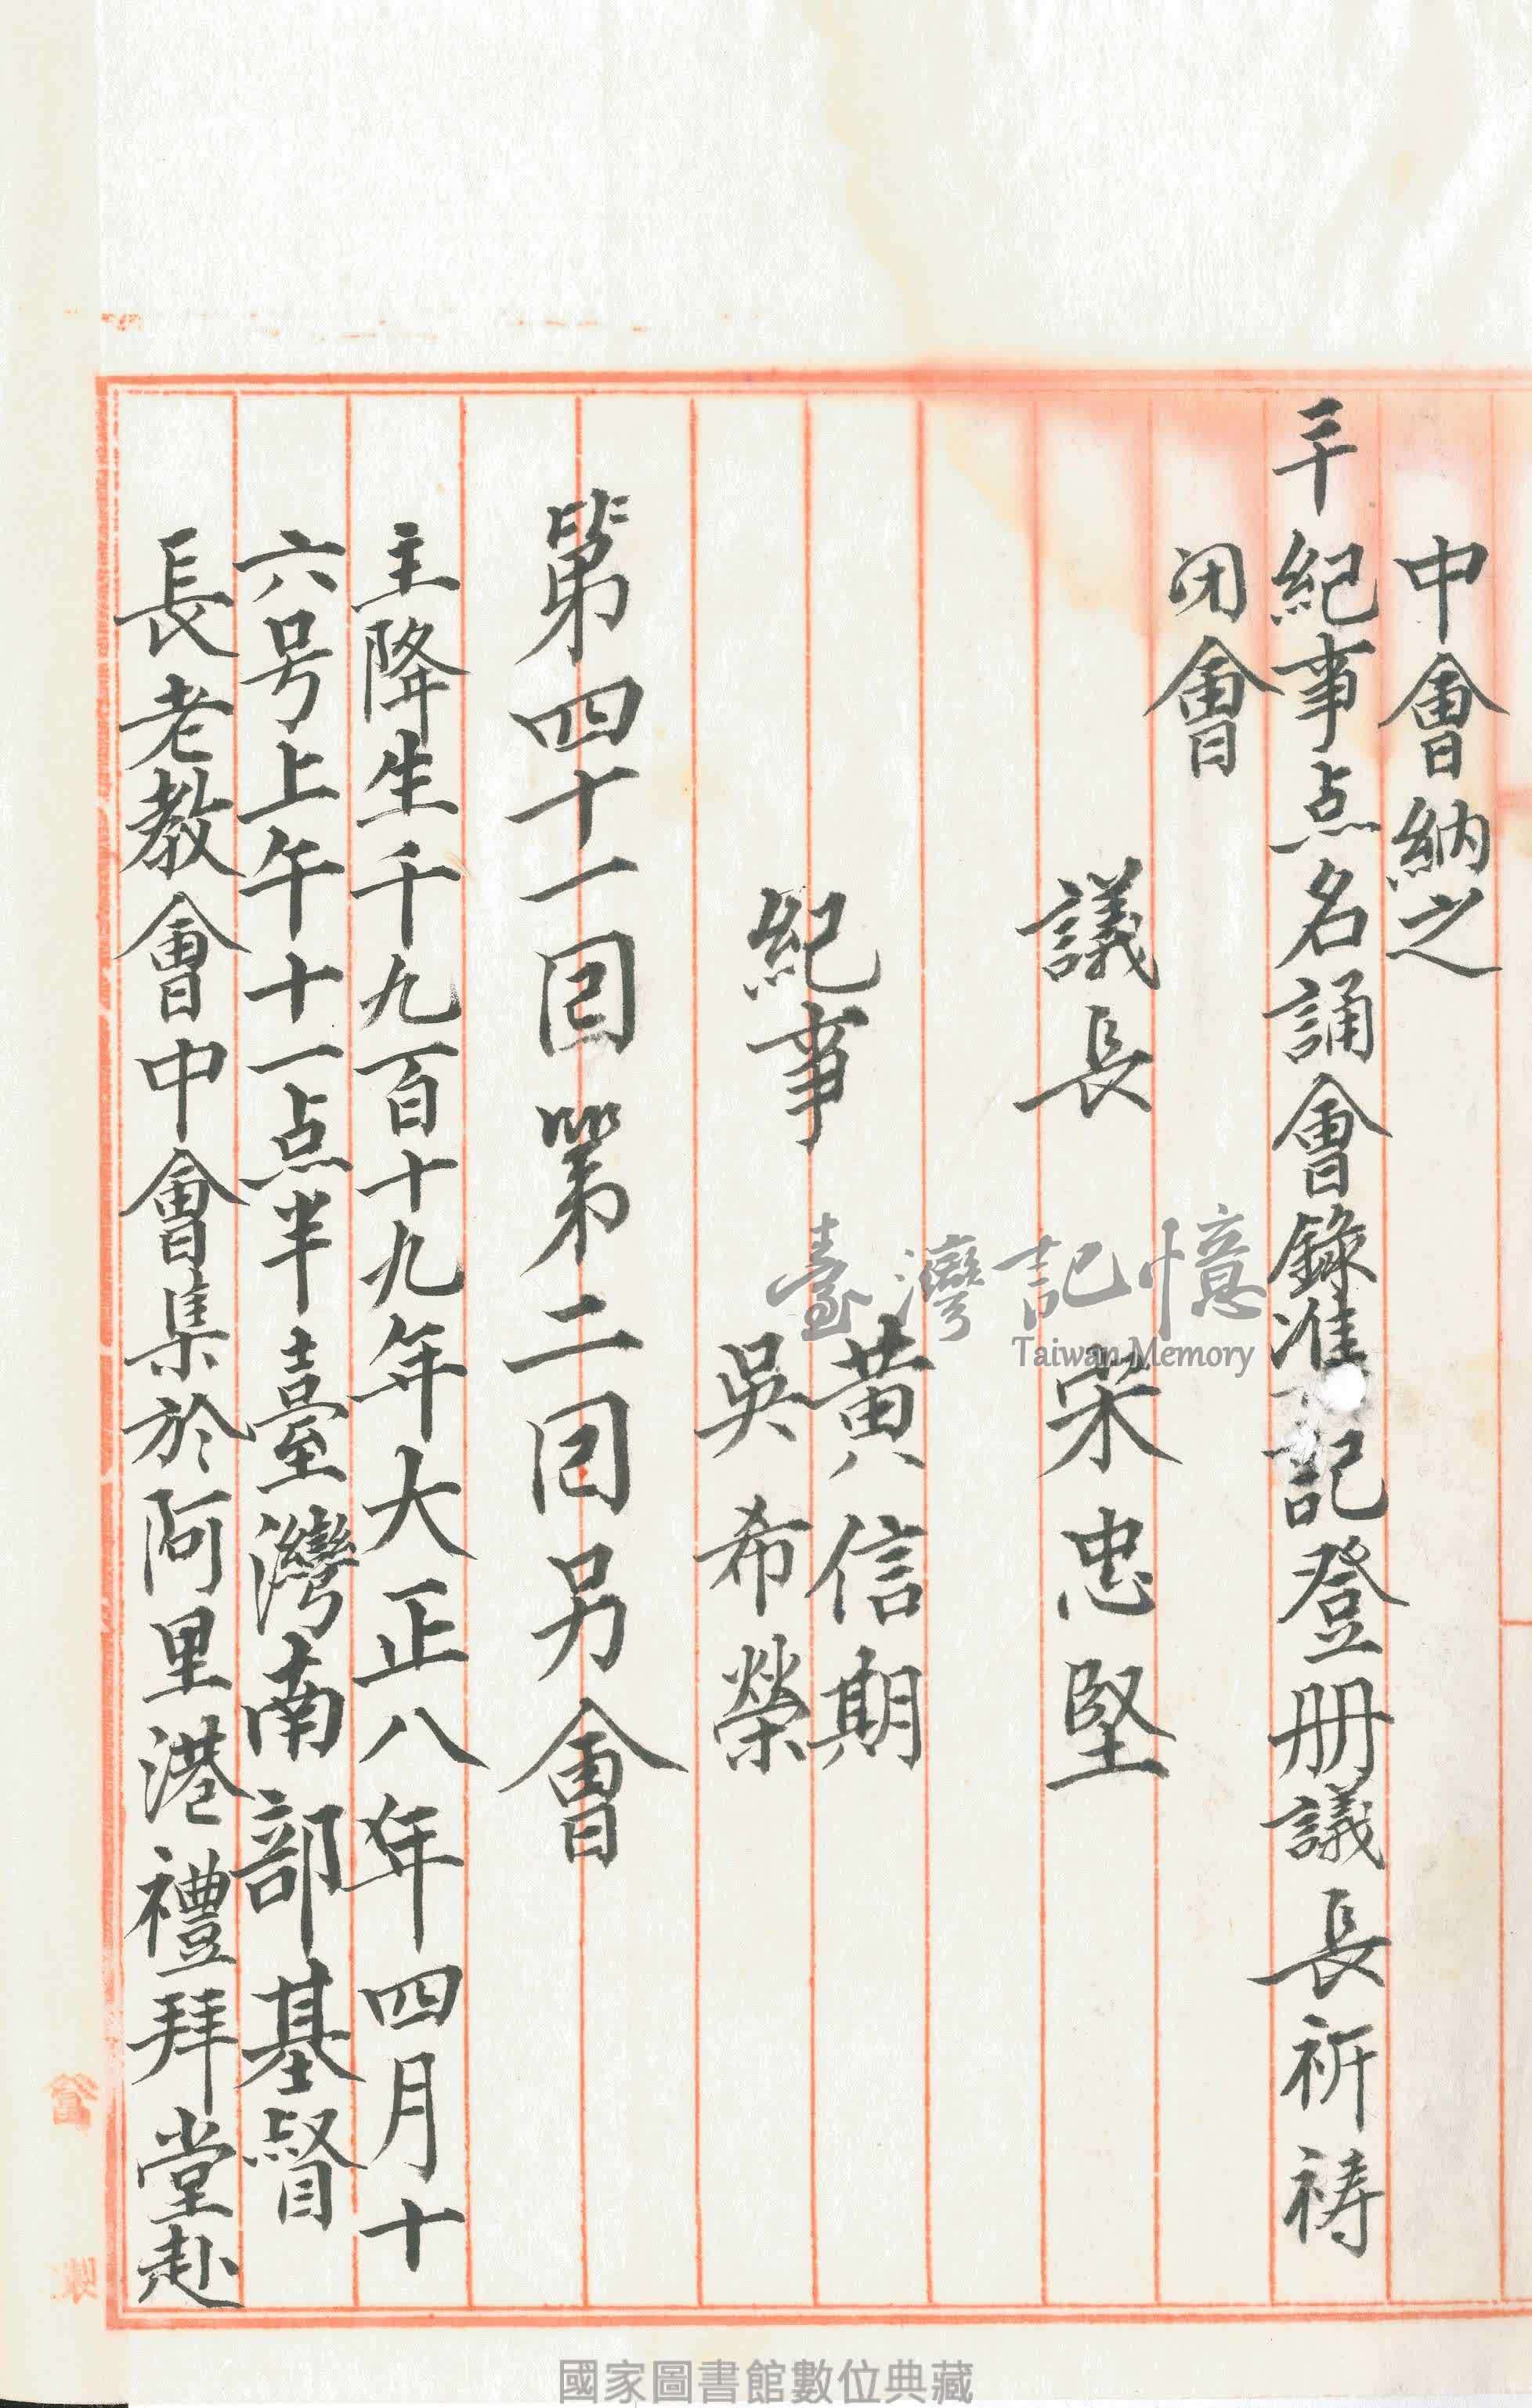 中會納之
三十 紀事点名誦會錄准記登册議長祈祷
闭會
議長 宋忠堅
紀事 黄信期
吳希榮
第四十一囬第二囬另會
主降生千九百十九年大正八年四月十
六号上午十一点半臺灣南部基督
長老教會中會集於阿里港禮拜堂赴
臺灣記憶
Taiwan Memory
國家圖書館數位典藏